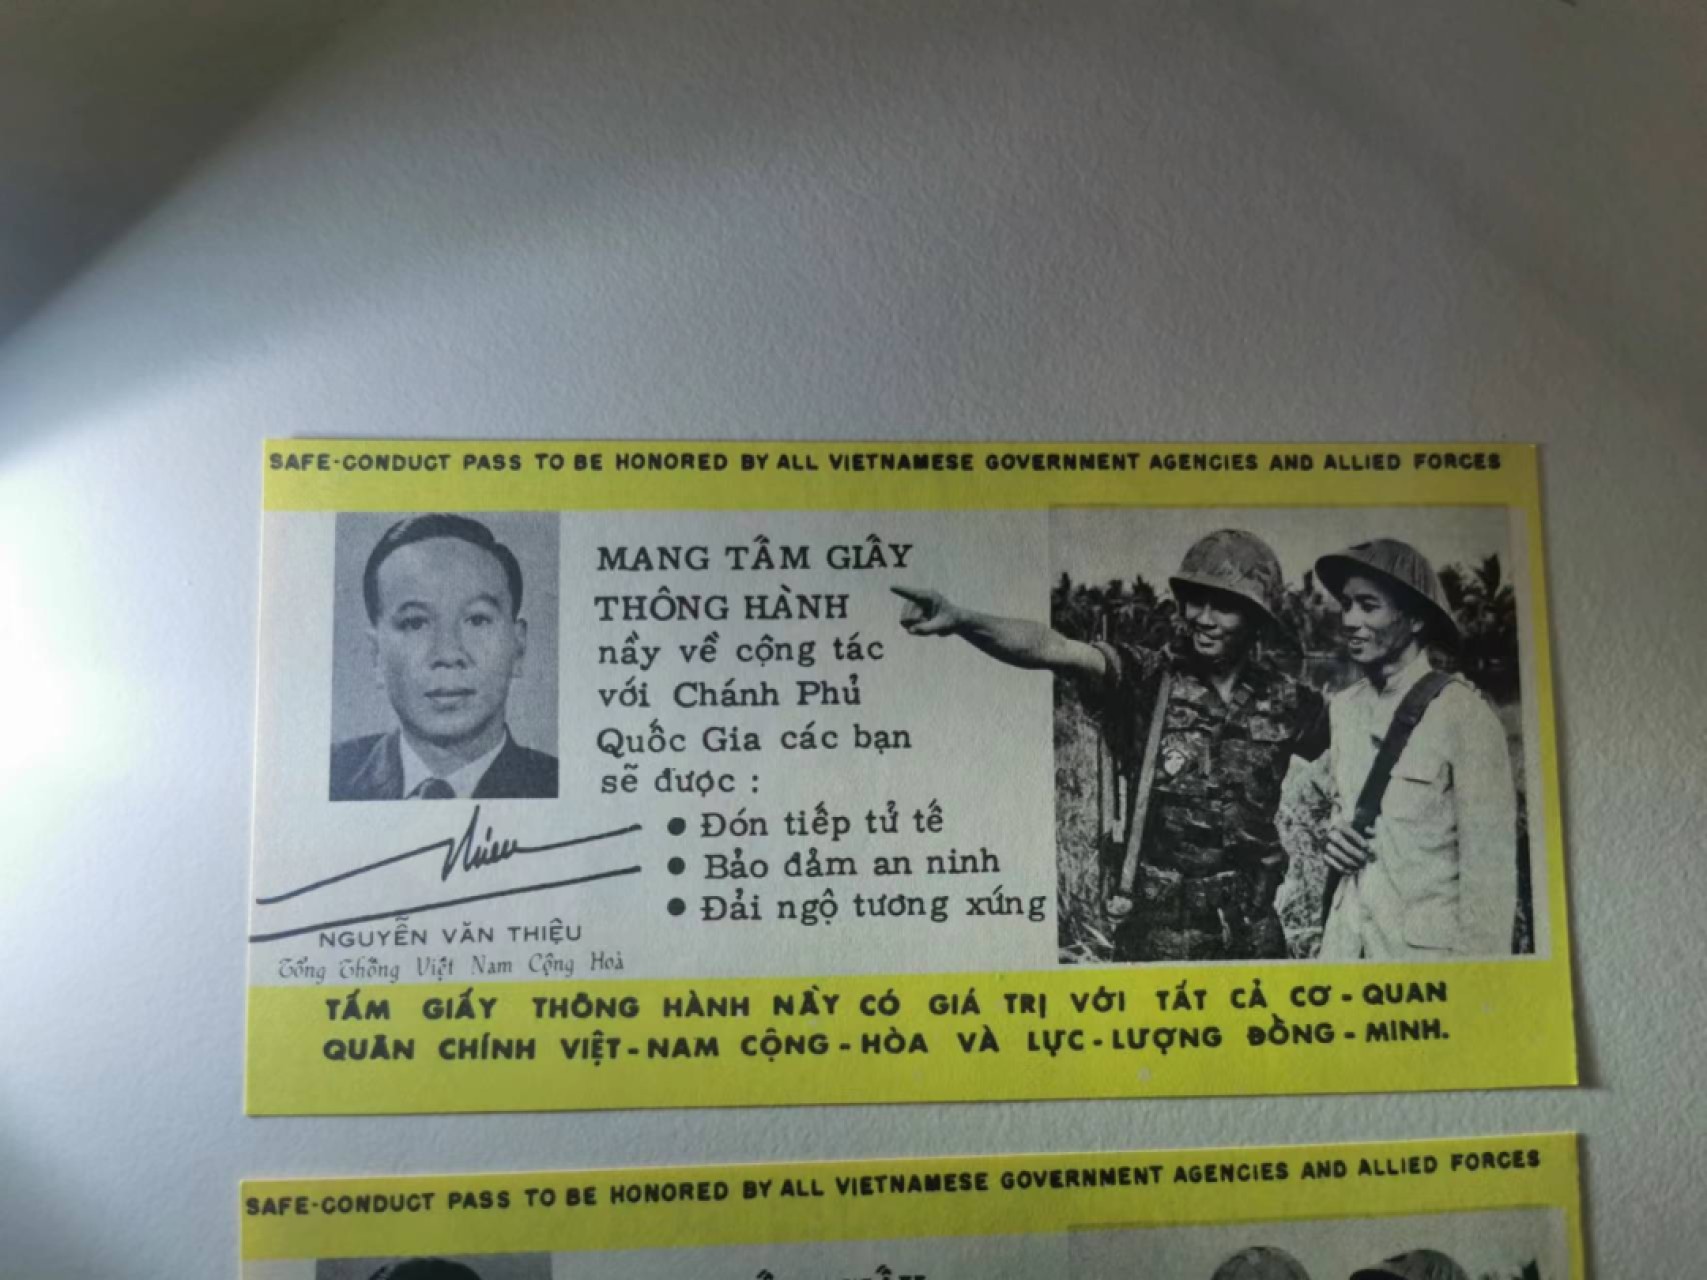 SAFE-CONDUCT PASS TO BE HONORED BY ALL VIETNAMESE GOVERNMENT AGENCIES AND ALLIED FORCES
MANG TẤM GIẤY
THÔNG HÀNH
nầy về cộng tác
với Chánh Phủ
Quốc Gia các bạn
sẽ được :
● Đón tiếp tử tế
● Bảo đảm an ninh
● Đải ngộ tương xứng
Thieu
NGUYỄN VĂN THIỆU
Tổng Thống Việt Nam Cộng Hoà
TẤM GIẤY THÔNG HÀNH NẦY CÓ GIÁ TRỊ VỚI TẤT CẢ CƠ - QUAN
QUÂN CHÍNH VIỆT - NAM CỘNG - HÒA VÀ LỰC - LƯỢNG ĐỒNG - MINH.
SAFE-CONDUCT PASS TO BE HONORED BY ALL VIETNAMESE GOVERNMENT AGENCIES AND ALLIED FORCES